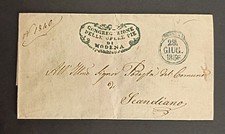 CONGREGAZIONE
DELLE OPERE PIE
DI
MODENA
28
GIUG.
All' Illmo Signor Podestà del Comune
di
Scandiano